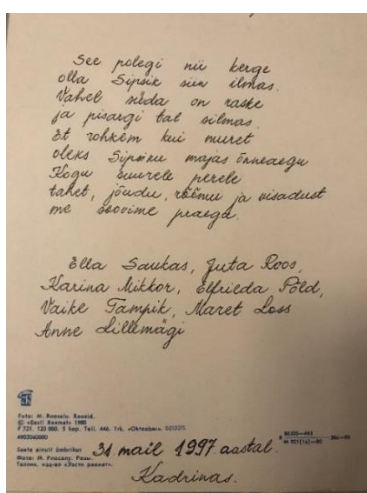 See polegi nii kerge
olla Sipsik siin ilmas.
Vahel süda on raske
ja pisargi tal silmas.
Et rohkem kui muret
oleks Sipsiku majas õnneaegu
Kogu suurele perele
tahet, jõudu, rõõmu ja visadust
me soovime praegu.
Ella Saukas, Juta Roos,
Karina Mikkor, Elfrieda Põld,
Vaike Tampik, Maret Loss
Anne Lillemägi
Foto: M. Raesalu. Roosid.
© «Eesti Raamat» 1980
Saata ainult ümbrikus
31 mail 1997 aastal.
Kadrinas.